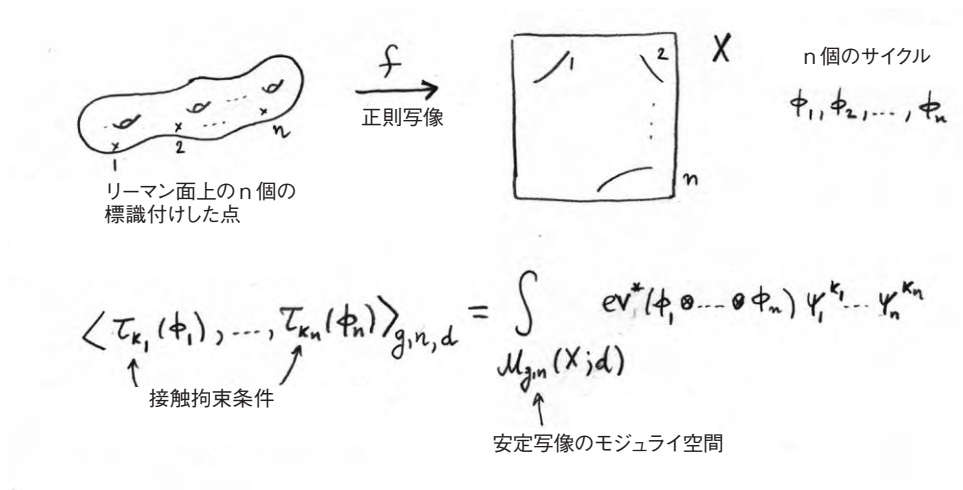 f
正則写像
1 2 n
リーマン面上のn個の
標識付けした点
1 2 n
X
n個のサイクル
ϕ₁, ϕ₂, ..., ϕₙ
⟨τ_{k₁}(ϕ₁), ..., τ_{kₙ}(ϕₙ)⟩_{g,n,d} = ∫_{M_{g,n}(X;d)} ev*(ϕ₁⊗...⊗ϕₙ) ψ₁^{k₁} ... ψₙ^{kₙ}
接触拘束条件
安定写像のモジュライ空間